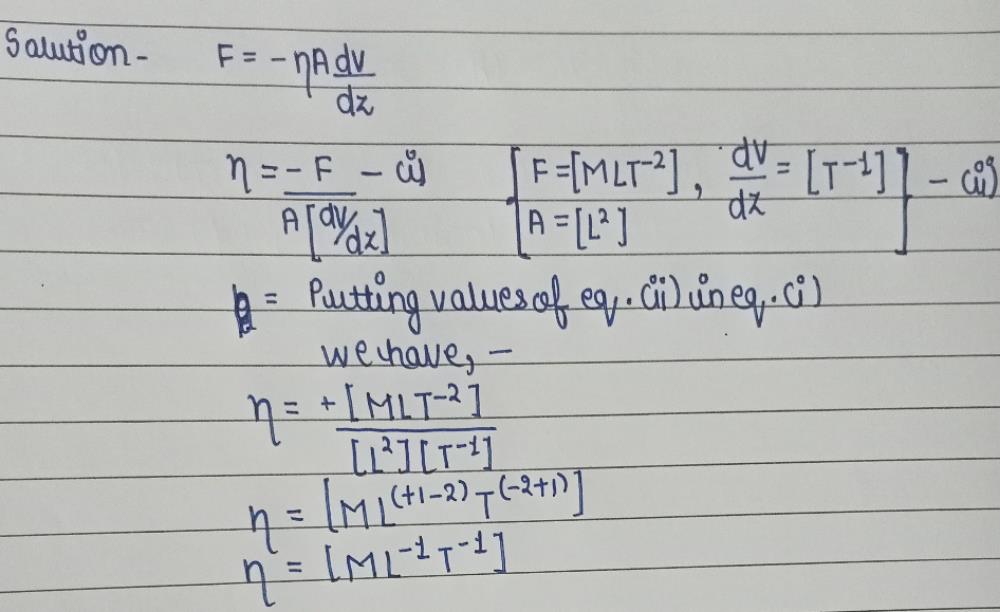 Solution - F = - ηA dv/dz
η = - F / A[dv/dz] - (i) [F = [MLT⁻²], dv/dz = [T⁻¹] A = [L²]] - (ii)
= Putting values of eq. (ii) in eq. (i)
we have, -
η = + [MLT⁻²] / [L²][T⁻¹]
η = [ML⁽⁺¹⁻²⁾T⁽⁻²⁺¹⁾]
η = [ML⁻¹T⁻¹]